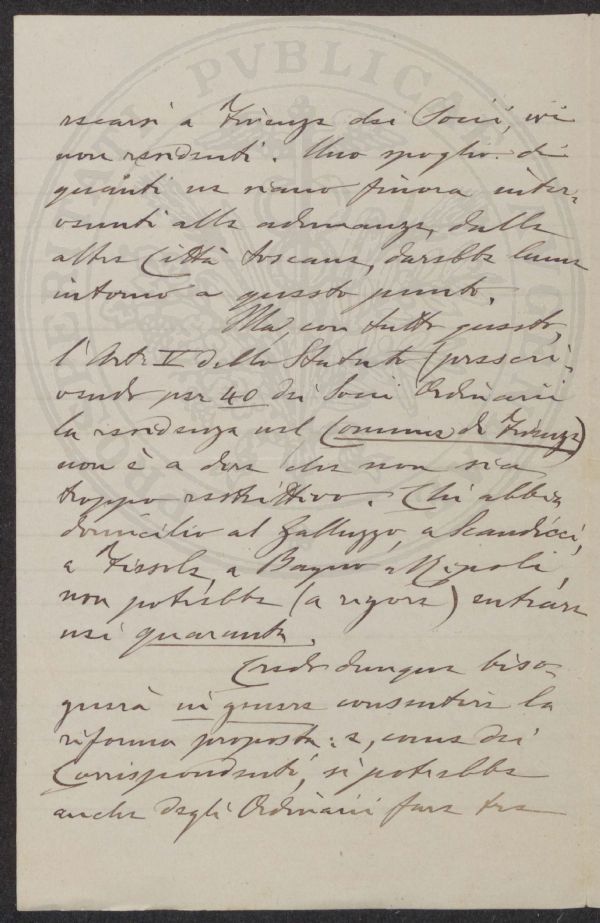 recarsi a Firenze dei Socii, ivi
non residenti. Uno spoglio di
quanti ne siano finora inter-
venuti alle adunanze, dalle
altre Città toscane, darebbe lume
intorno a questo punto.
Ma, con tutto questo,
l'Art. V dello Statuto (prescri-
vendo per 40 dei Socii Ordinarii
la residenza nel Comune di Firenze)
non è a dire che non sia
troppo restrittivo. Chi abbia
domicilio al Galluzzo, a Scandicci,
a Fiesole, a Bagno a Ripoli,
non potrebbe (a rigore) entrare
nei quaranta.
Credo dunque biso-
gnerà in genere consentire la
riforma proposta: e, come dei
Corrispondenti, si potrebbe
anche degli Ordinarii fare tre